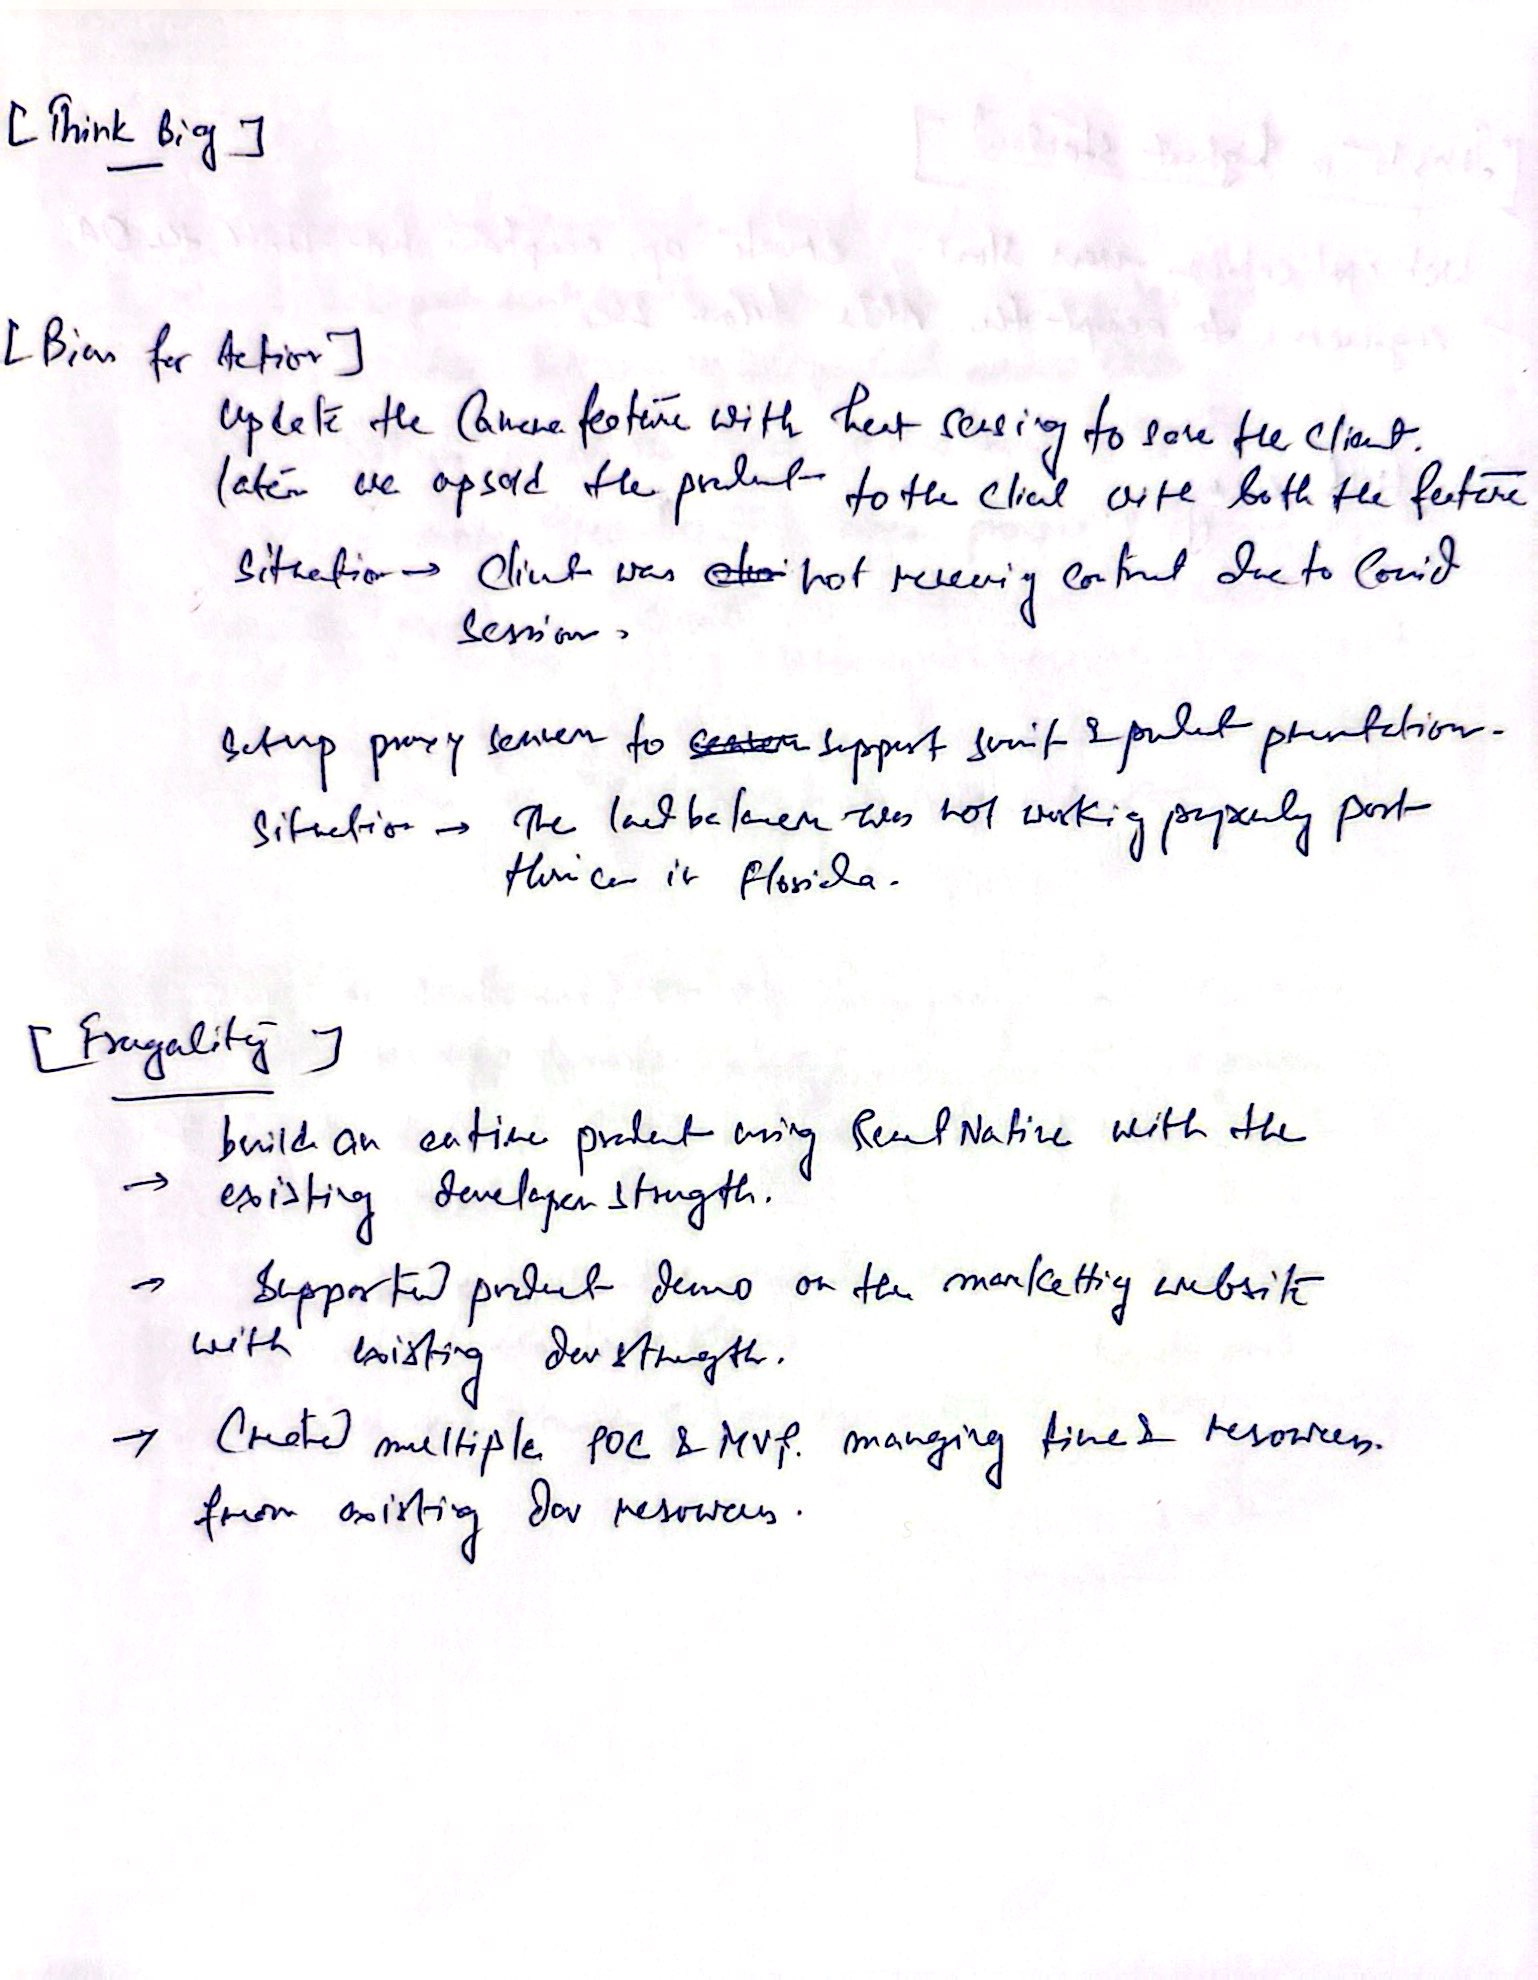 [Think Big]
[Bias for Action]
Update the Camera feature with heat sensing to save the client.
later we upsold the product to the client with both the feature
Situation → Client was not renewing contract due to Covid
Session.
Setup proxy server to support summit & product presentation.
Situation → The load balancer was not working properly post
in Florida.
[Frugality]
build an entire product using React Native with the
→ existing developer strength.
→ Supported product demo on the marketting website
with existing dev strength.
→ Created multiple POC & MVP. manging time & resources.
from existing dev resources.